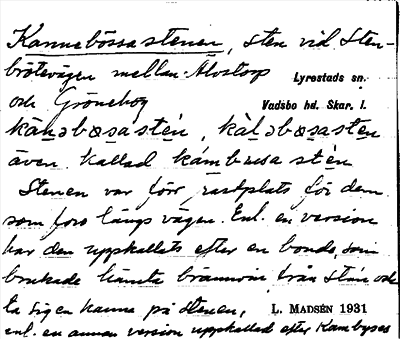 Kannebössastenen, sten vid Sten-
brötevägen mellan Älvstorp
Lyrestads sn.
och Gröneborg
Vadsbo hd. Skar. l.
kànəbøsastén, kàləbøsastén
även kallad kámbusa stén
Stenen var förr rastplats för dem
som foro längs vägen. Enl. en version
har den uppkallats efter en bonde, som
brukade hämta brännvin från Stén och
ta sig en kanna på stenen,
L. MADSÉN 1931
enl. en annan version uppkallad efter Kambyses